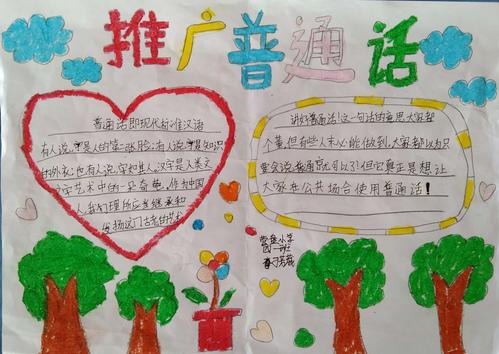 推广普通话
普通话即现代标准汉语
有人说，字是人的第二张脸；有人说，字是知识
的外衣；也有人说，字如其人，汉字是人类文
字艺术中的一朵奇葩，作为中国
人，我们理所应当继承和
发扬这门古老的艺术
讲好普通话！这一句话的意思大家都
懂，但有些人未必能做到，大家都以为只
要会说普通话就可以了！但它真正是想让
大家在公共场合使用普通话！
小学
四一班